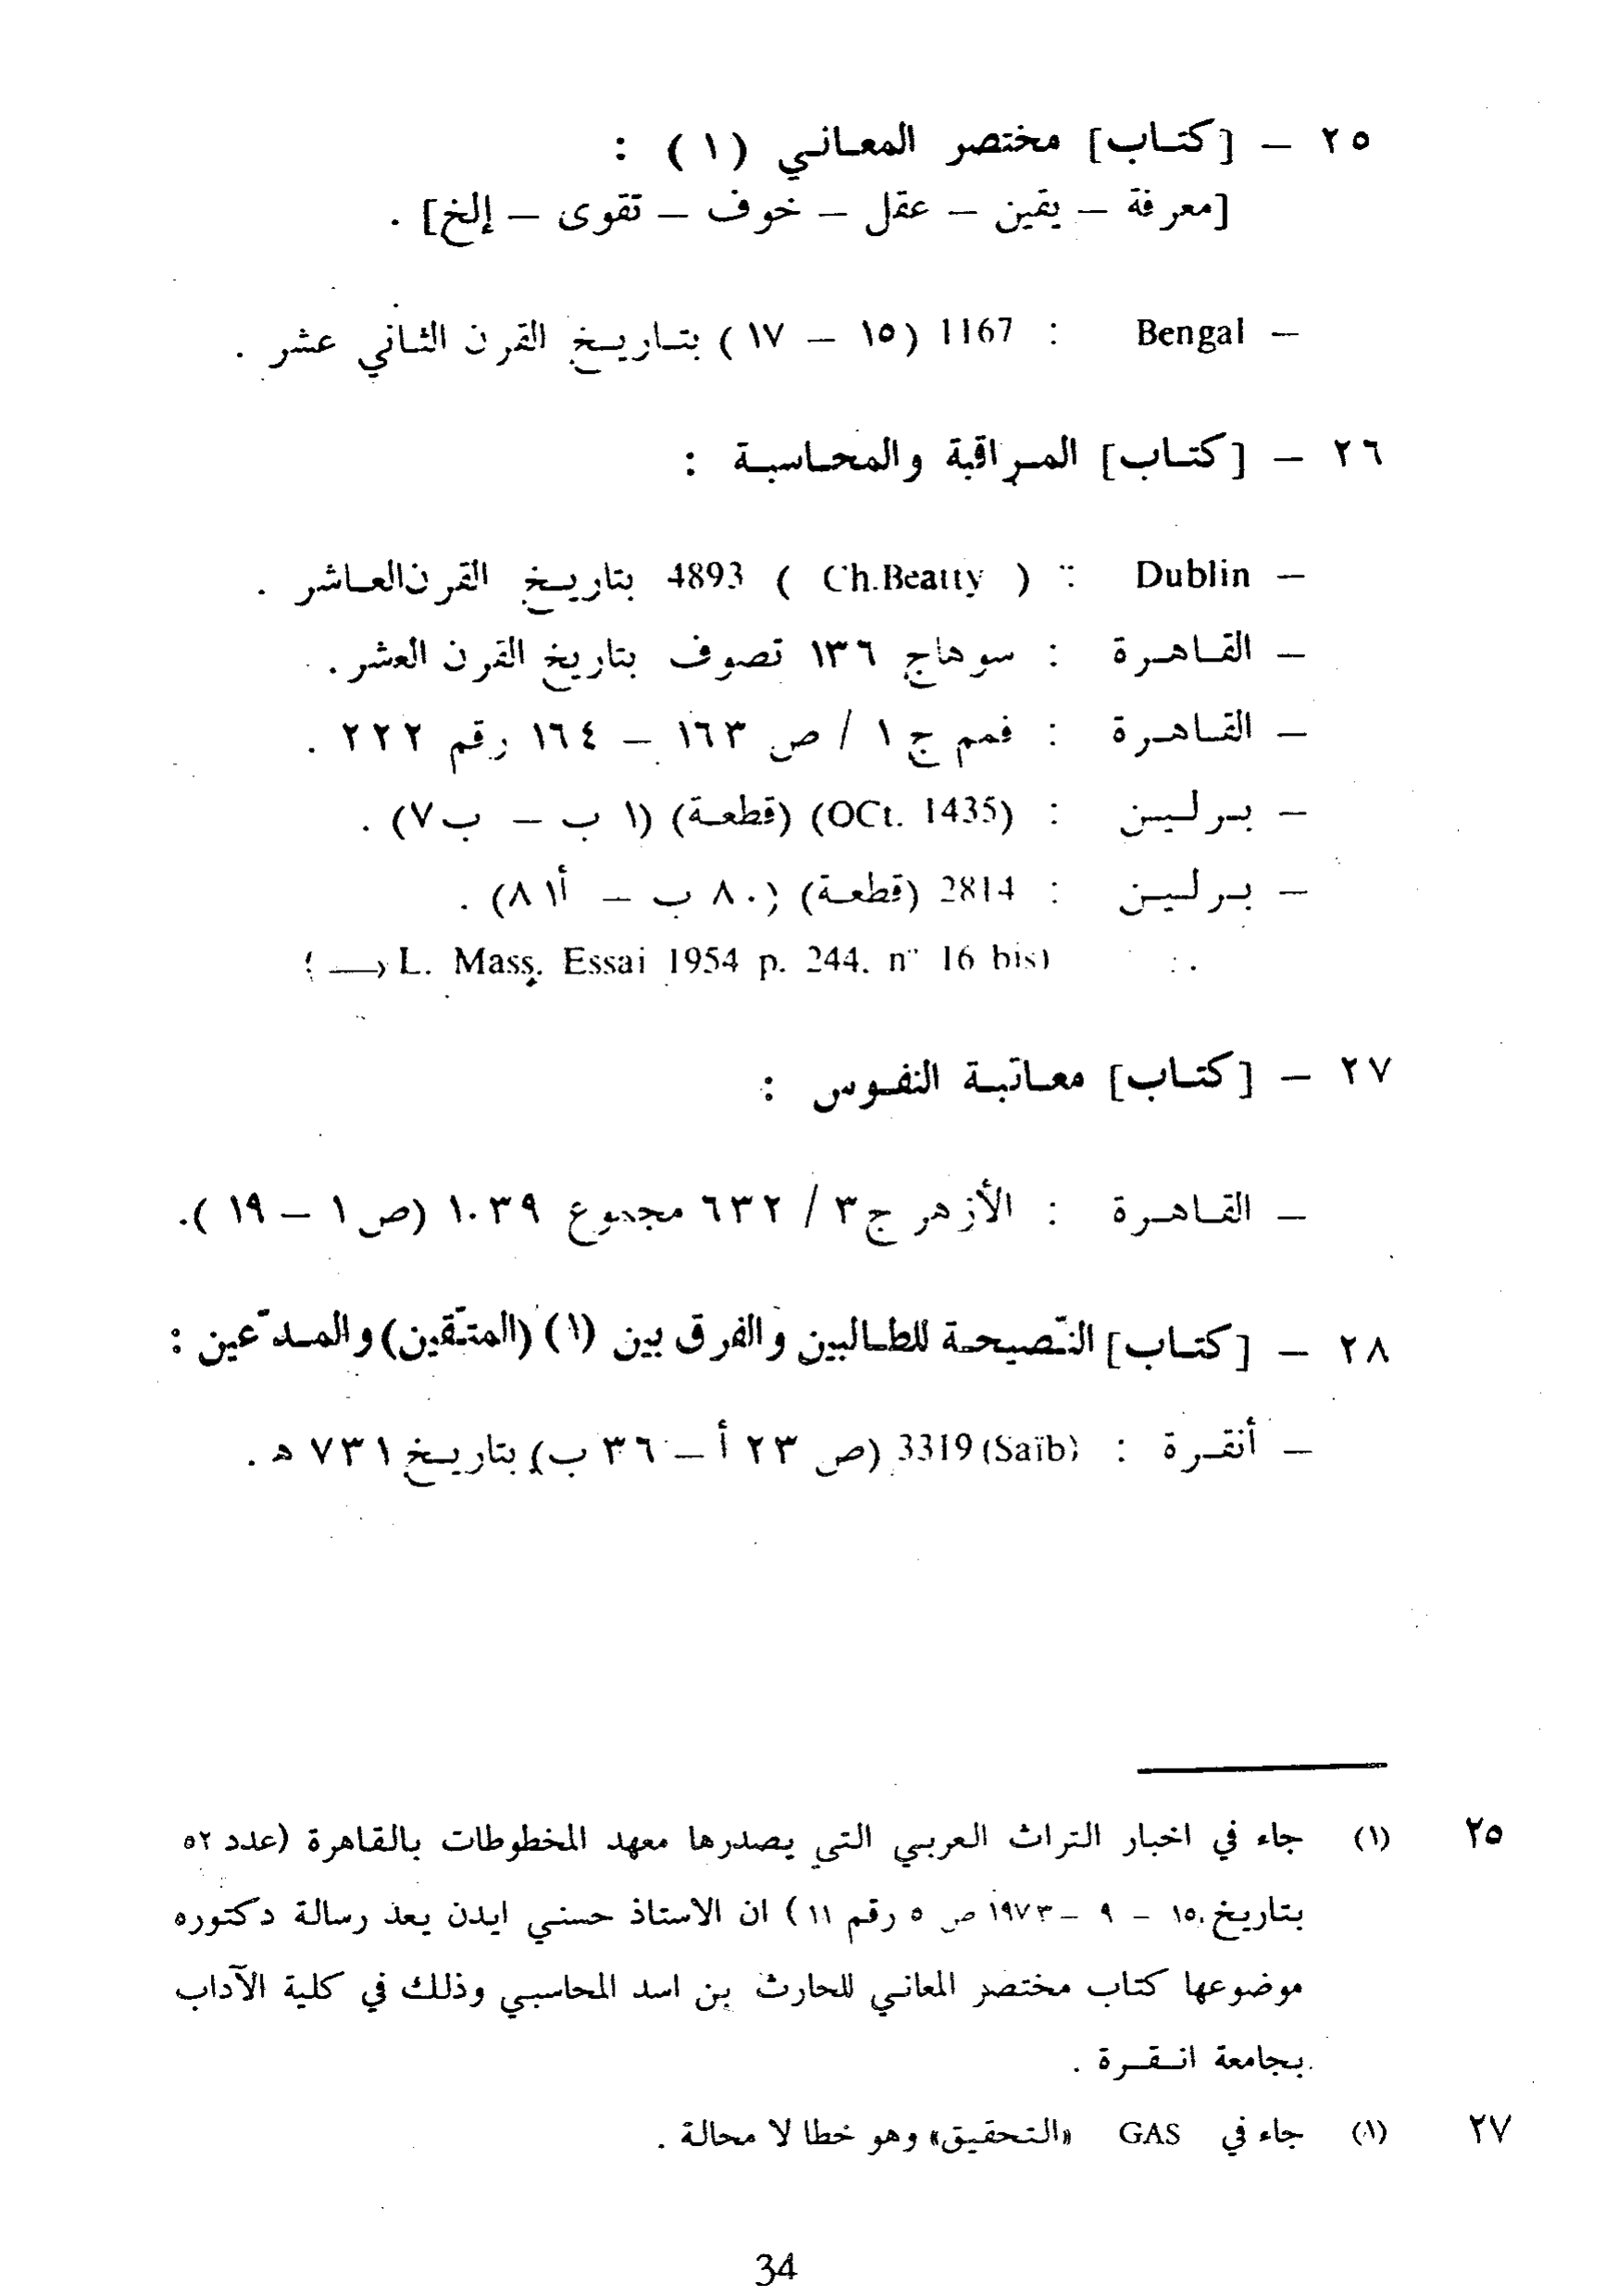 ٢٥ – [كتاب] مختصر المعاني (١) :
[معرفة – يقين – عقل – خوف – تقوى – إلخ] .
– Bengal : 1167 (١٥ – ١٧) بتاريخ القرن الثاني عشر .
٢٦ – [كتاب] المراقبة والمحاسبة :
– Dublin : ( Ch.Beatty ) 4893 بتاريخ القرن العاشر .
– القاهرة : سوهاج ١٣٦ تصوف بتاريخ القرن العشر .
– القاهرة : فمم ج ١ / ص ١٦٣ – ١٦٤ رقم ٢٢٢ .
– برلين : (OCt. 1435) (قطعة) (١ ب – ب٧) .
– برلين : 2814 (قطعة) (٨٠ ب – ٨١أ) .
(→ L. Mass. Essai 1954 p. 244. n° 16 bis)
٢٧ – [كتاب] معاتبة النفوس :
– القاهرة : الأزهر ج٣ / ٦٣٢ مجموع ١٠٣٩ (ص ١ – ١٩ ).
٢٨ – [كتاب] النّصيحة للطالبين والفرق بين (١) (المتّقين) والمدّعين :
– أنقرة : 3319 (Saïb) (ص ٢٣ أ – ٣٦ ب) بتاريخ ٧٣١ ه .
٢٥ (١) جاء في اخبار التراث العربي التي يصدرها معهد المخطوطات بالقاهرة (عدد ٥٢
بتاريخ ١٥ – ٩ – ١٩٧٣ ص ٥ رقم ١١ ) ان الاستاذ حسني ايدن يعد رسالة دكتوره
موضوعها كتاب مختصر المعاني للحارث بن اسد المحاسبي وذلك في كلية الآداب
بجامعة انقرة .
٢٧ (١) جاء في GAS «التحقيق» وهو خطا لا محالة .
34